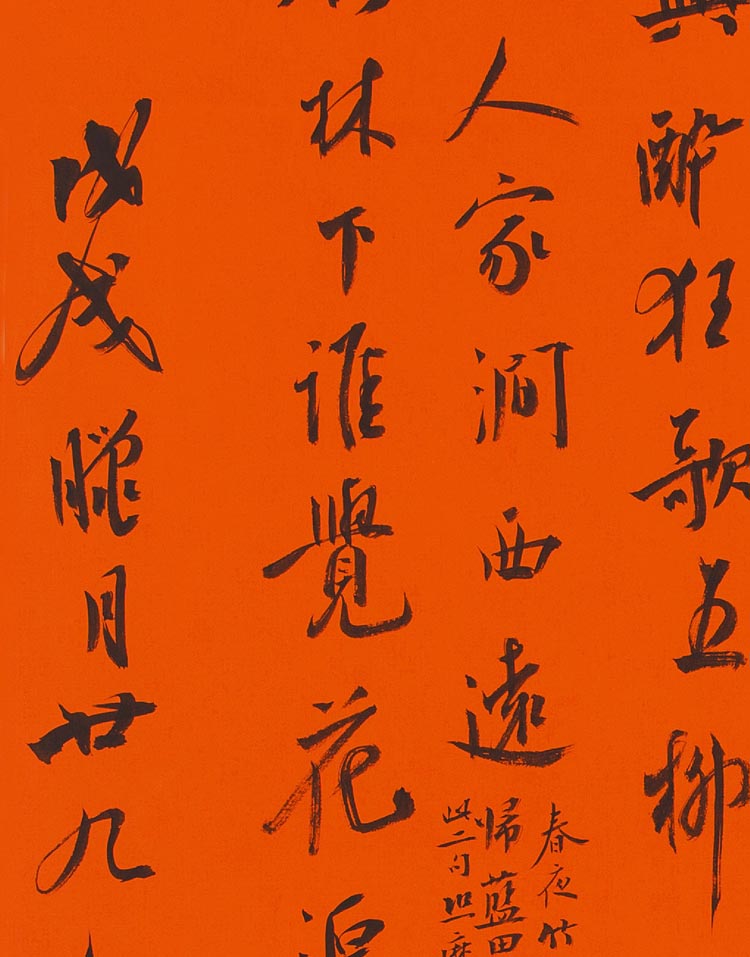 醉狂歌五柳
人家澗西遠
春夜竹
歸藍田
此二句
林下誰覺花
戊戌臘月廿九